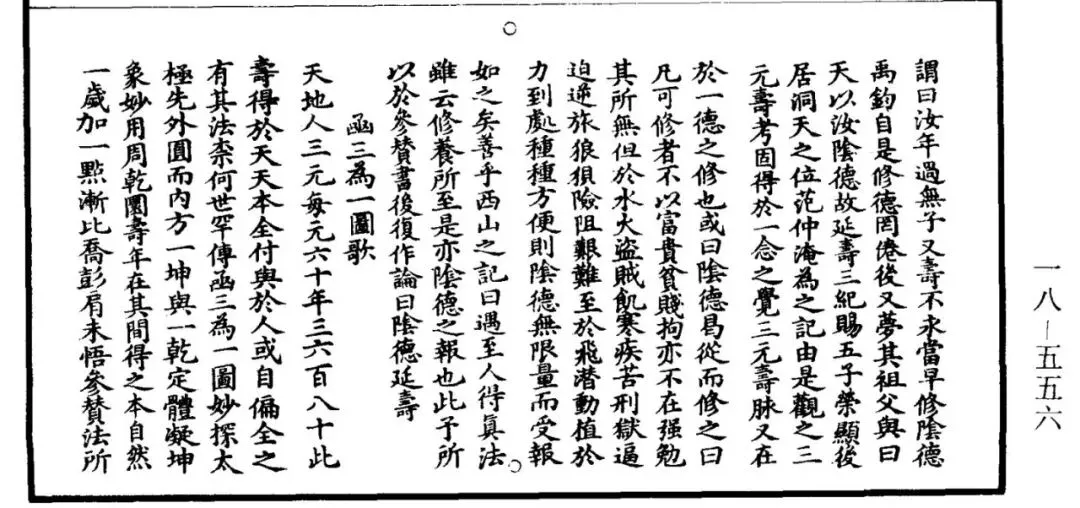 謂曰汝年過無子又壽不永當早修陰德
禹鈞自是修德罔倦後又夢其祖父與曰
天以汝陰德故延壽三紀賜五子榮顯後
居洞天之位范仲淹為之記由是觀之三
元壽考固得於一念之覺三元壽脉又在
於一德之修也或曰陰德曷從而修之曰
凡可修者不以富貴貧賤拘亦不在强勉
其所無但於水火盜賊飢寒疾苦刑獄逼
迫逆旅狼狽險阻艱難至於飛潛動植於
力到處種種方便則陰德無限量而受報
如之矣善乎西山之記曰遇至人得眞法
雖云修養所至是亦陰德之報也此予所
以於參贊書後復作論曰陰德延壽
函三為一圖歌
天地人三元每元六十年三六百八十此
壽得於天天本全付與於人或自偏全之
有其法柰何世罕傳函三為一圖妙探太
極先外圓而内方一坤與一乾定體凝坤
象妙用周乾圜壽年在其間得之本自然
一歲加一點漸比喬彭肩未悟參贊法所
一八-五五六